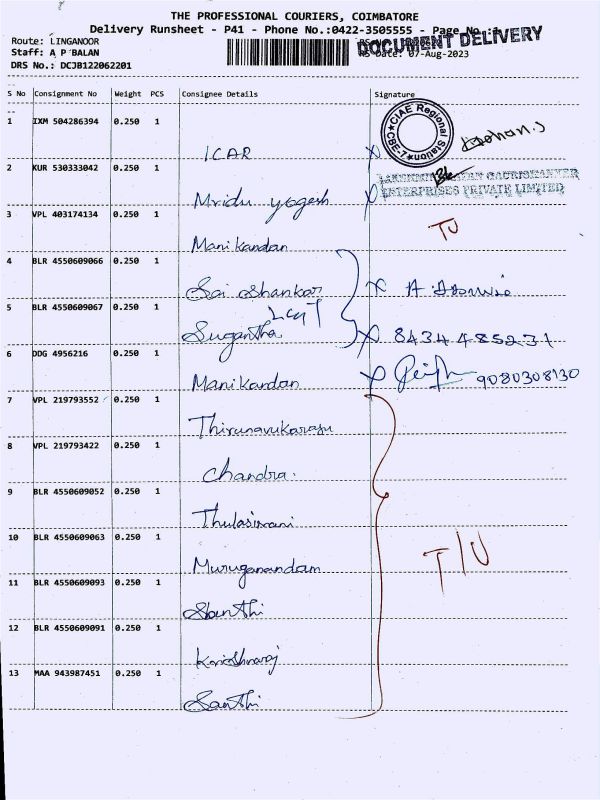 THE PROFESSIONAL COURIERS, COIMBATORE
Delivery Runsheet - P41 - Phone No.:0422-3505555 - Page No.:
DOCUMENT DELIVERY
Route: LINGANOOR
Staff: A P BALAN
Date: 07-Aug-2023
DRS No.: DCJB122062201
S No Consignment No Weight PCS Consignee Details Signature
1 IXM 504286394 0.250 1
CIAE Regional Station CBE-7
ICAR X
2 KUR 530333042 0.250 1
ENTERPRISES PRIVATE LIMITED
Mridu yogesh X
3 VPL 403174134 0.250 1
TU
Manikandan
4 BLR 4550609066 0.250 1
Sai Shankar X A
5 BLR 4550609067 0.250 1
Sugantha X 8434485231
6 DDG 4956216 0.250 1
Manikandan X 9080308130
7 VPL 219793552 0.250 1
Thirunavukarasu
8 VPL 219793422 0.250 1
Chandra.
9 BLR 4550609052 0.250 1
Thulasimani
10 BLR 4550609063 0.250 1
T/U
Muruganandam
11 BLR 4550609093 0.250 1
Santhi
12 BLR 4550609091 0.250 1
Krishnaraj
13 MAA 943987451 0.250 1
Santhi